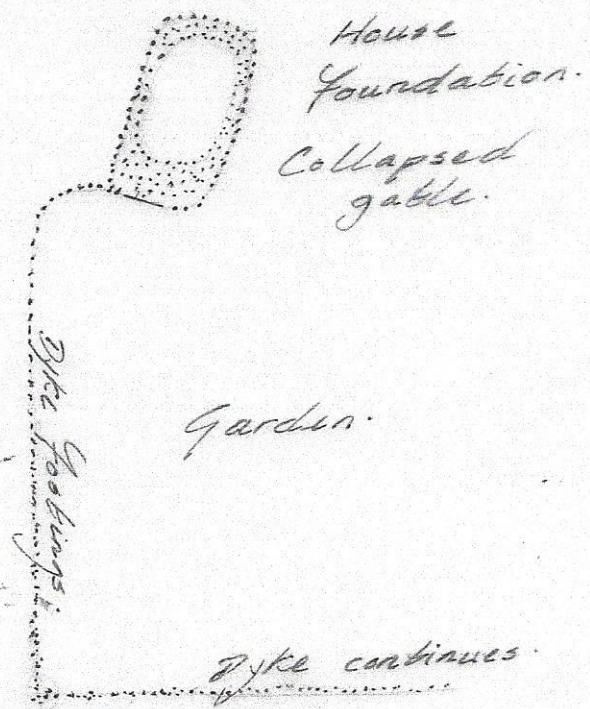 House
Foundation.
Collapsed
gable.
Dyke Footings.
Garden.
Dyke continues.